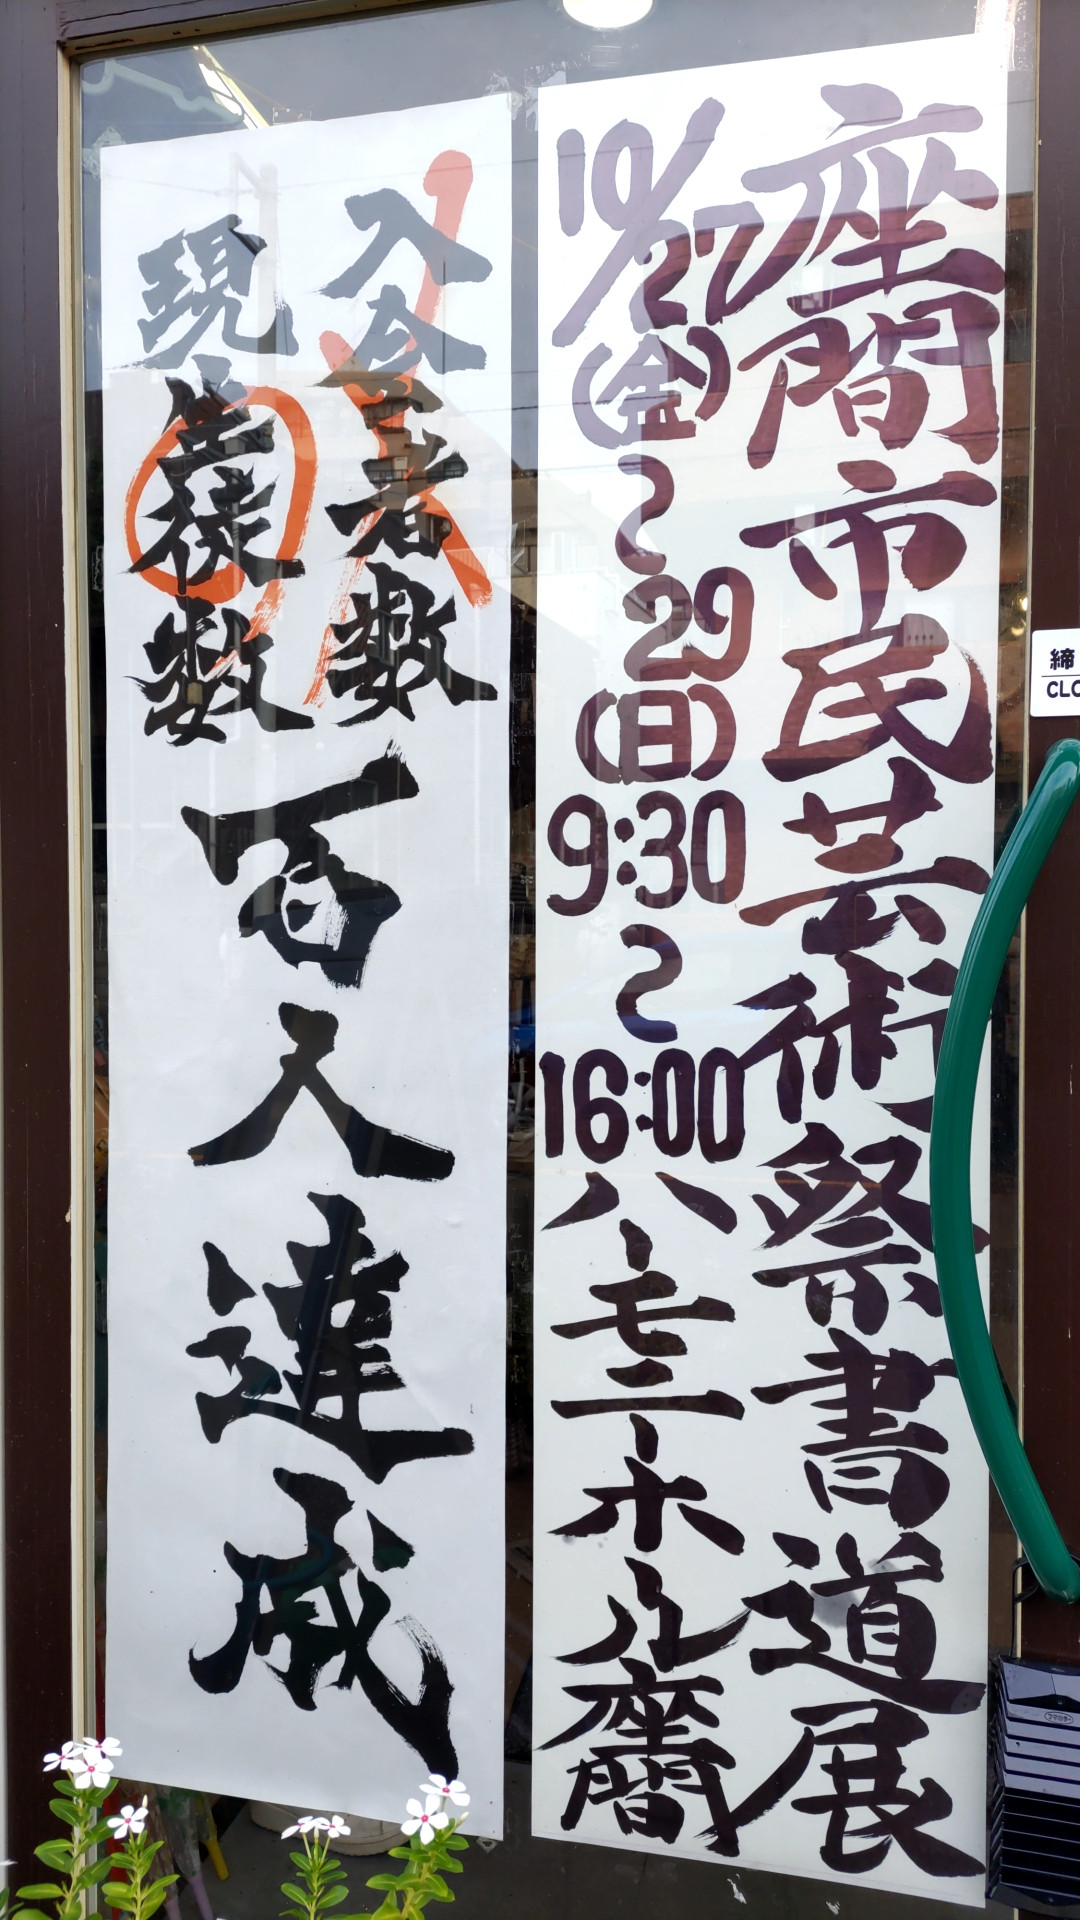 座間市民芸術祭書道展
10/27(金)~29(日)9:30~16:00ハーモニーホール座間
入会者数
現生徒数
百人達成
締
CLO